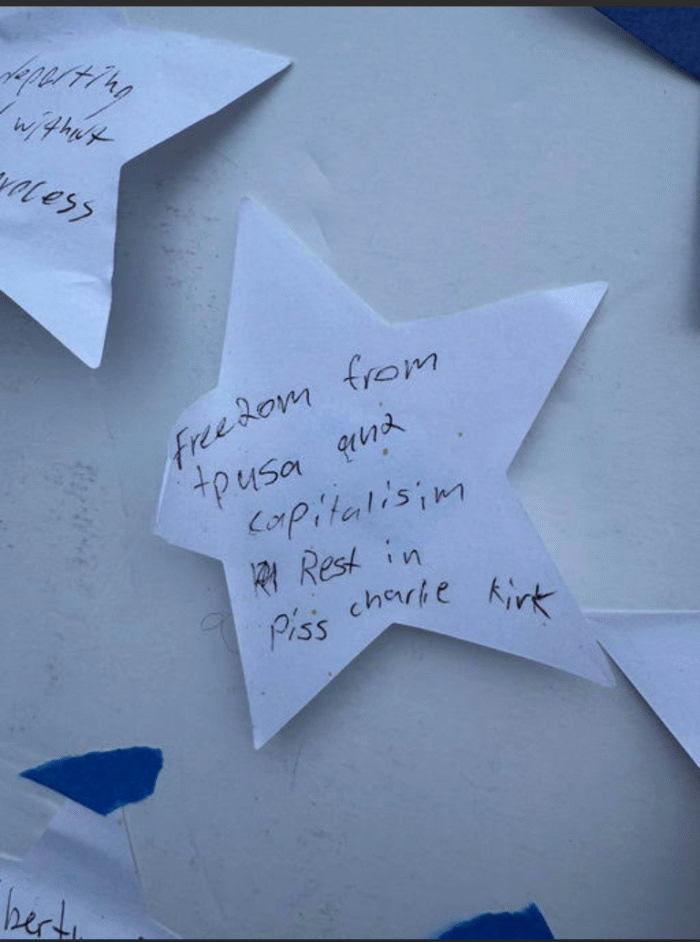 deporting
without
process
Freedom from
tpusa and
capitalisim
Rest in
Piss charlie kirk